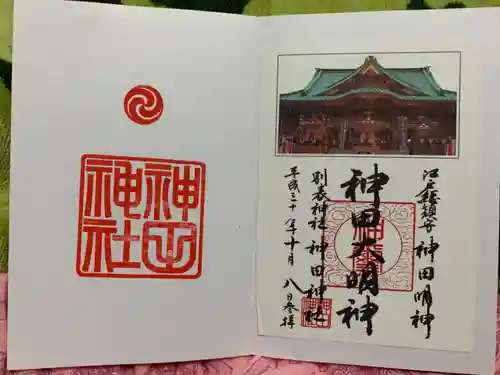 神田
神社
江戸総鎮守 神田明神
神田大明神
別表神社 神田神社
平成三十年十月八日参拝